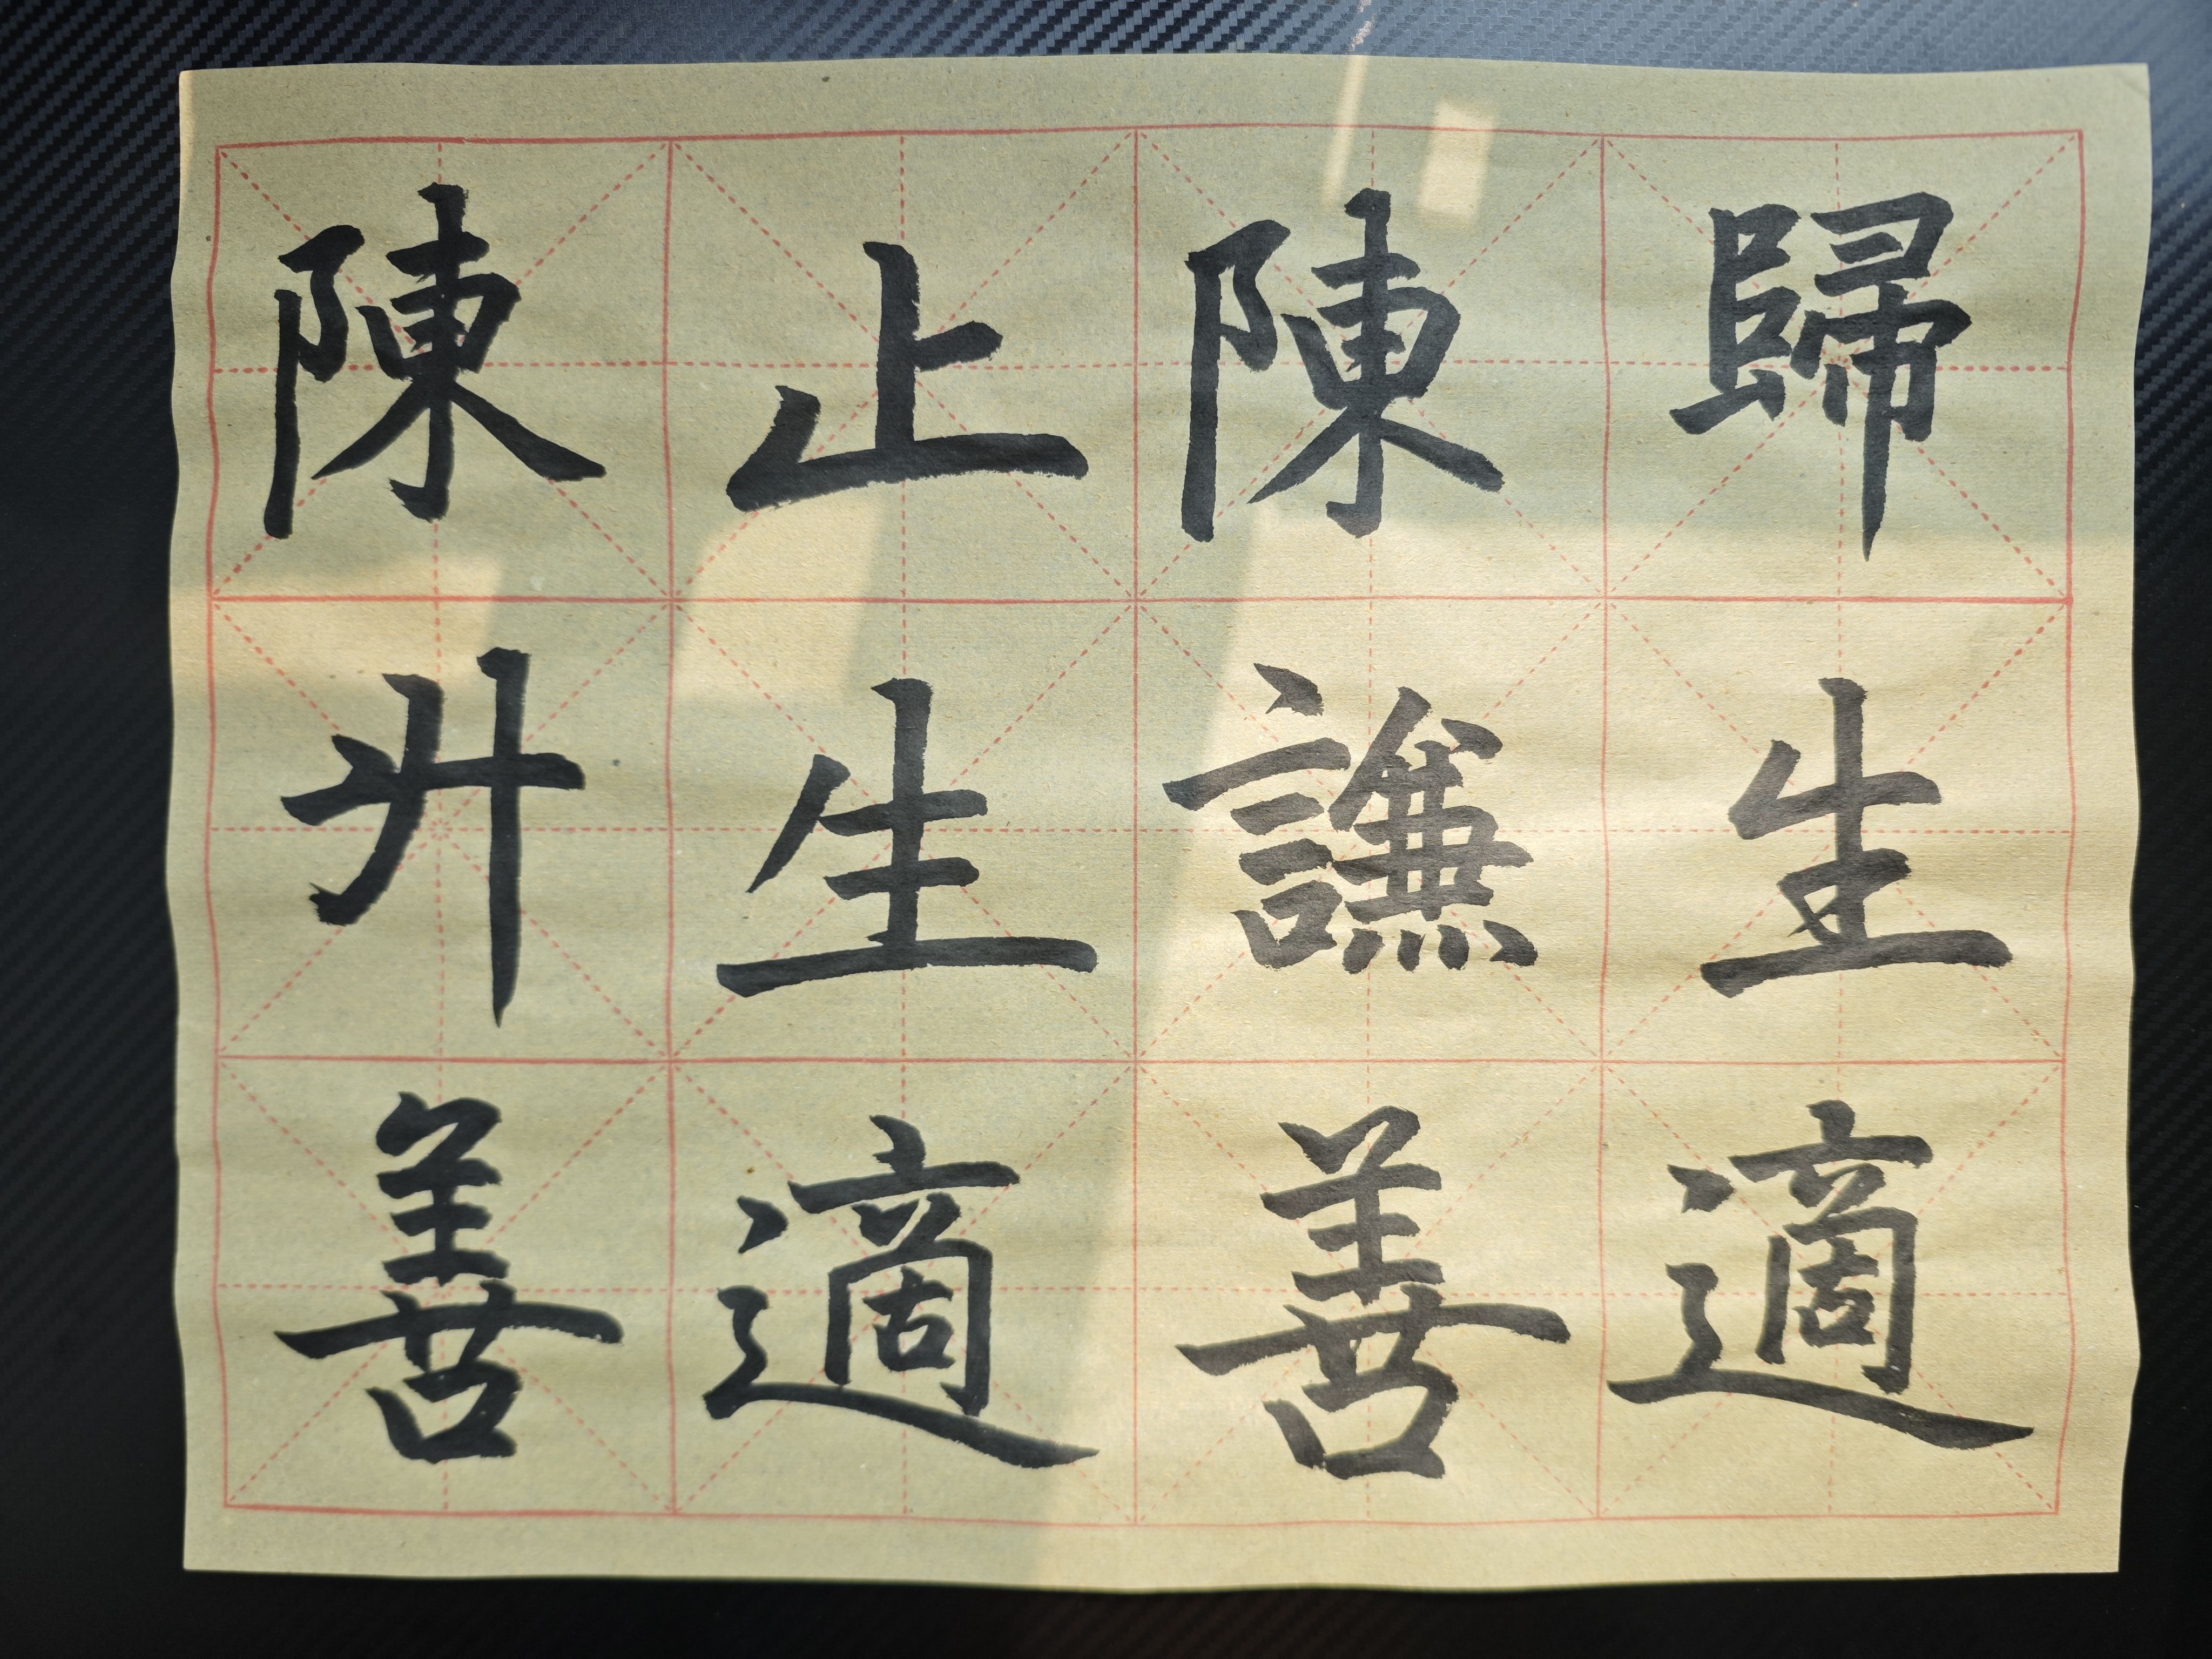 歸生適
陳謙善
止生適
陳升善